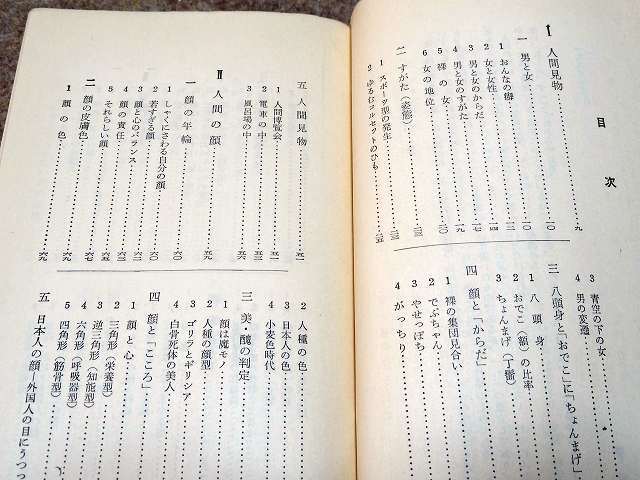 目次
Ⅰ 人間見物……九
一 男と女……一〇
1 おんなの脚……一〇
2 女と女性……一二
3 男と女のからだ……一四
4 男と女のすがた……一七
5 裸の女……二〇
6 女の地位……二二
二 すがた(姿態)
1 スポーツ型の発生
2 ゆるむコルセットのひも
3 青空の下の女
4 男の変遷
三 八頭身と「おでこ」に「ちょんまげ」
1 八頭身
2 おでこ(額)の比率
3 ちょんまげ(丁髷)
四 顔と「からだ」
1 裸の集団見合い
2 でぶちゃん
3 やせっぽち
4 がっちり
五 人間見物……五一
1 人間博覧会……五一
2 電車の中……五三
3 風呂場の中……五六
Ⅱ 人間の顔……五九
一 顔の年輪……五九
1 しゃくにさわる自分の顔……五九
2 若すぎる顔……六〇
3 顔と心のバランス……六二
4 顔の責任……六三
5 それらしい顔……六五
二 顔の皮膚色……六七
1 顔の色……六九
2 人種の色
3 日本人の色
4 小麦色時代
三 美・醜の判定
1 顔は魔モノ
2 人種の顔型
3 ゴリラとギリシア
4 白骨死体の美人
四 顔と「こころ」
1 顔と心
2 三角形(栄養型)
3 逆三角形(知能型)
4 六角形(呼吸器型)
5 四角形(筋骨型)
五 日本人の顔―外国人の目にうつっ